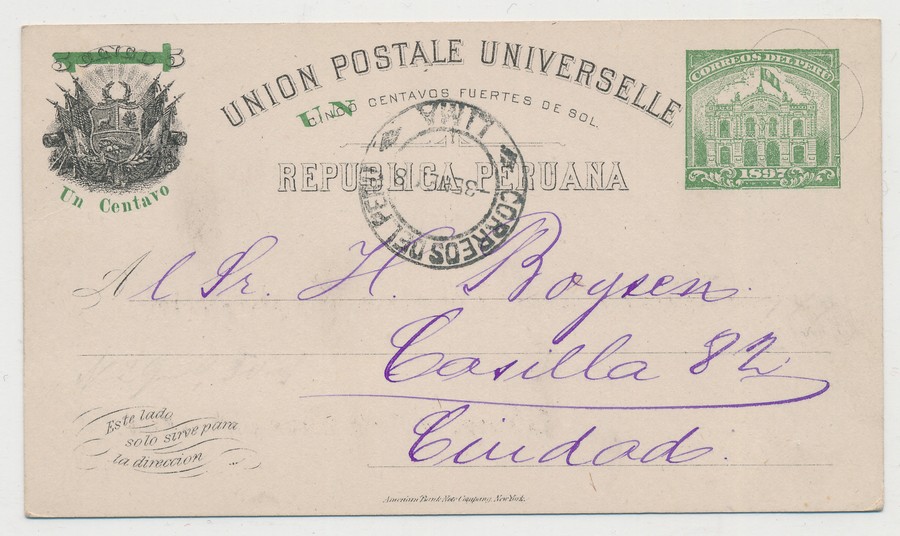 UNION POSTALE UNIVERSELLE
CORREOS DEL PERU
1897
UN
CINCO CENTAVOS FUERTES DE SOL.
REPUBLICA PERUANA
Un Centavo
LIMA
CORREOS DEL PERU
Al Sr. H. Boysen
Casilla 82
Ciudad.
Este lado
solo sirve para
la direccion
American Bank Note Company, New York.